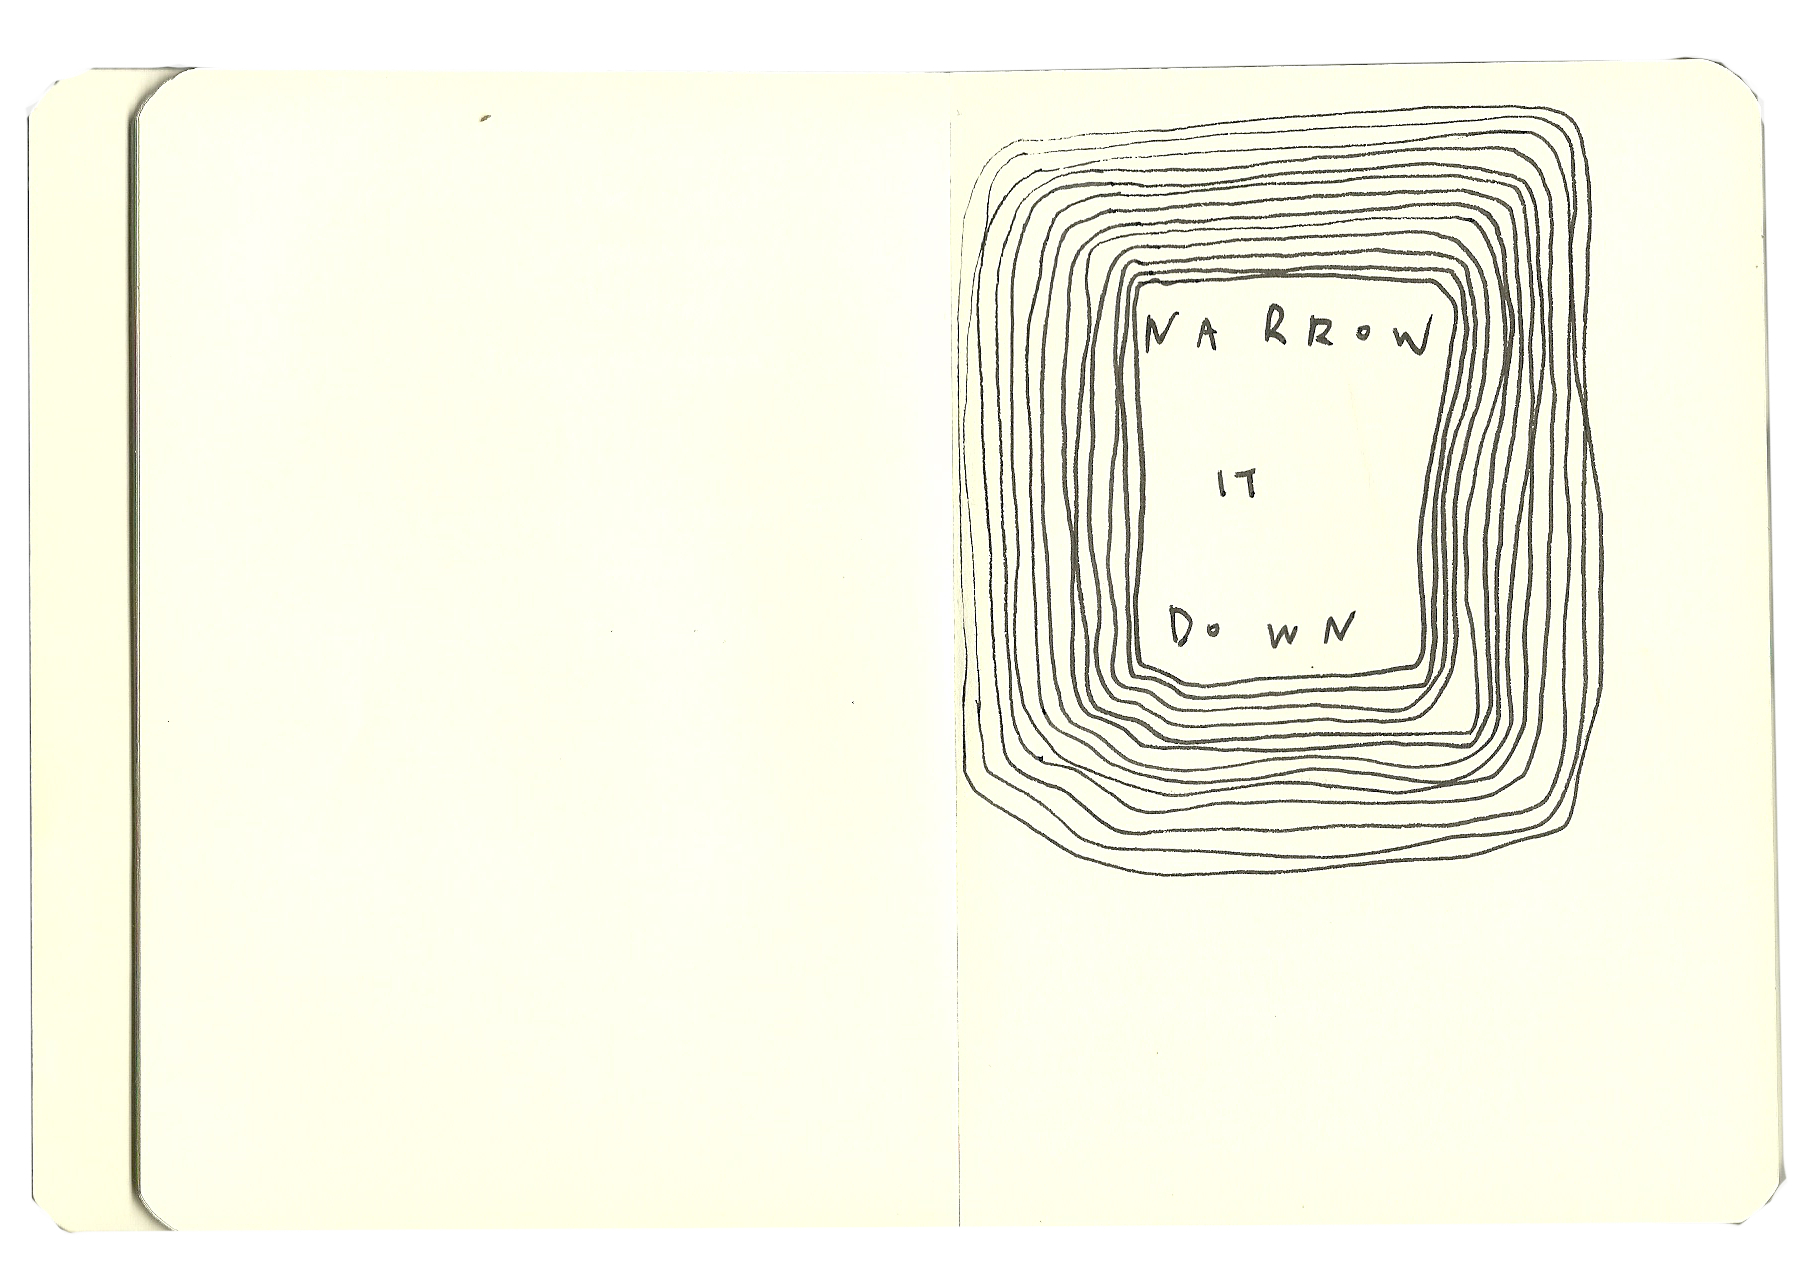 NARROW
IT
DOWN